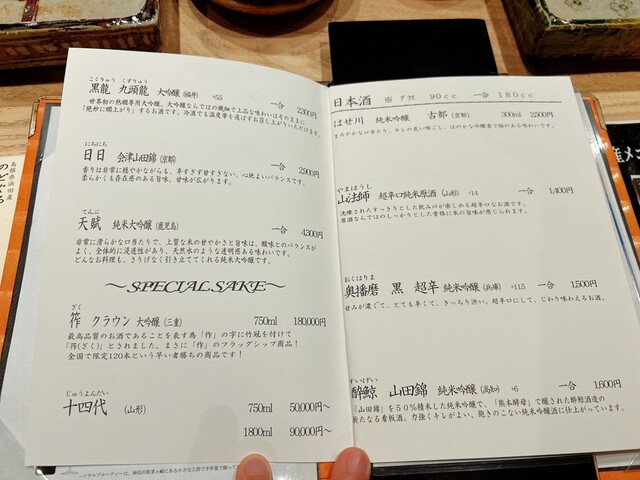 こくりゅう くずりゅう
黒龍 九頭龍 大吟醸 (福井) +5.5 一合 2,300円
世界初の熱燗専用大吟醸。大吟醸ならではの繊細で上品な味わいはそのままに
「絶妙に燗上がり」するお酒です。冷酒でも温度帯を選ばずお召し上がりいただけます。
にちにち
日日 会津山田錦 (京都) 一合 2,900円
香りは非常に穏やかながらも、辛すぎず甘すぎない、心地よいバランスです。
柔らかくも存在感のある旨味、甘味が広がります。
てんぶ
天賦 純米大吟醸 (鹿児島) 一合 4,300円
非常に滑らかな口当たりで、上質な米の甘やかさと旨味は、酸味とのバランスが
よく、全体的に浸透性があり、天然水のような透明感ある味わいです。
どんなお料理も、さりげなく引き立ててくれる純米大吟醸です。
～SPECIAL SAKE～
ざく
筰 クラウン 大吟醸 (三重) 750ml 180,000円
最高品質のお酒であることを表す為「作」の字に竹冠を付けて
「筰(ざく)」とされました。まさに「作」のフラッグシップ商品!
全国で限定120本という早い者勝ちの商品です!
じゅうよんだい
十四代 (山形) 750ml 50,000円～
1800ml 90,000円～
日本酒 ※ グラス 90cc 一合 180cc
はせ川 純米吟醸 古都 (京都) 300ml 2,500円
まろやかな口当たり、キレの良い味ごし、ほのかな吟醸香で幅のある味わいです。
やまほうし
山法師 超辛口純米原酒 (山形) 一合 1,400円
洗練されたすっきりとした飲み口が楽しめる超辛口なお酒です。
原酒ならではのしっかりとした骨格に米の旨味が感じられます。
おくはりま
奥播磨 黒 超辛 純米吟醸 (兵庫) +11.5 一合 1,500円
甘みが濃くて、とても辛くて、きっちり渋い。超辛口にして、じわり味わえるお酒。
すいげい
酔鯨 山田錦 純米吟醸 (高知) +6 一合 1,600円
「山田錦」を50%精米した純米吟醸で、「熊本酵母」で醸された酔鯨酒造の
新たなる看板酒。力強くキレがよい、飽きのこない純米吟醸酒に仕上がっています。
島根県浜田産
のどぐろ